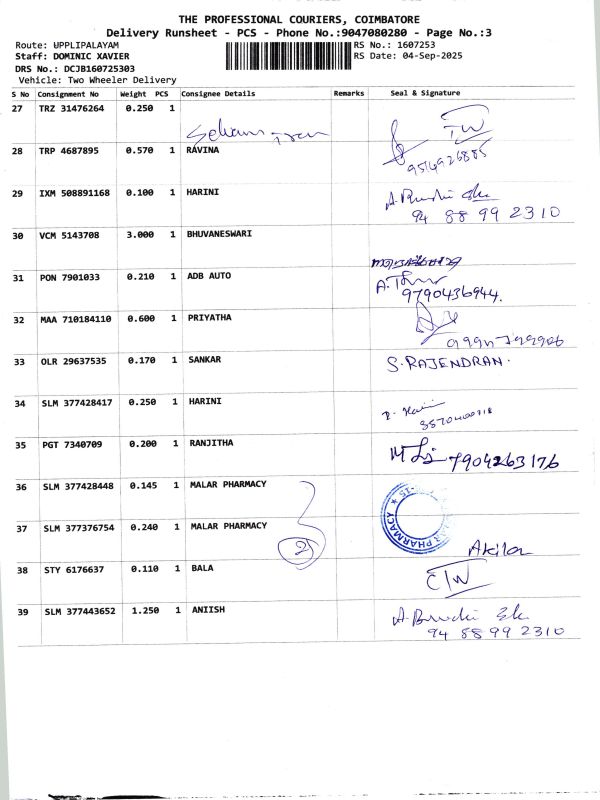 THE PROFESSIONAL COURIERS, COIMBATORE
Delivery Runsheet - PCS - Phone No.:9047080280 - Page No.:3
Route: UPPLIPALAYAM RS No.: 1607253
Staff: DOMINIC XAVIER RS Date: 04-Sep-2025
DRS No.: DCJB160725303
Vehicle: Two Wheeler Delivery
S No Consignment No Weight PCS Consignee Details Remarks Seal & Signature
27 TRZ 31476264 0.250 1
28 TRP 4687895 0.570 1 RAVINA 9514926885
29 IXM 508891168 0.100 1 HARINI
94 88 99 2310
30 VCM 5143708 3.000 1 BHUVANESWARI
31 PON 7901033 0.210 1 ADB AUTO
9790436944.
32 MAA 710184110 0.600 1 PRIYATHA
33 OLR 29637535 0.170 1 SANKAR S. RAJENDRAN.
34 SLM 377428417 0.250 1 HARINI
35 PGT 7340709 0.200 1 RANJITHA 7904263176
36 SLM 377428448 0.145 1 MALAR PHARMACY
37 SLM 377376754 0.240 1 MALAR PHARMACY
2
PHARMACY
Akila
38 STY 6176637 0.110 1 BALA
39 SLM 377443652 1.250 1 ANIISH
94 88 99 2310